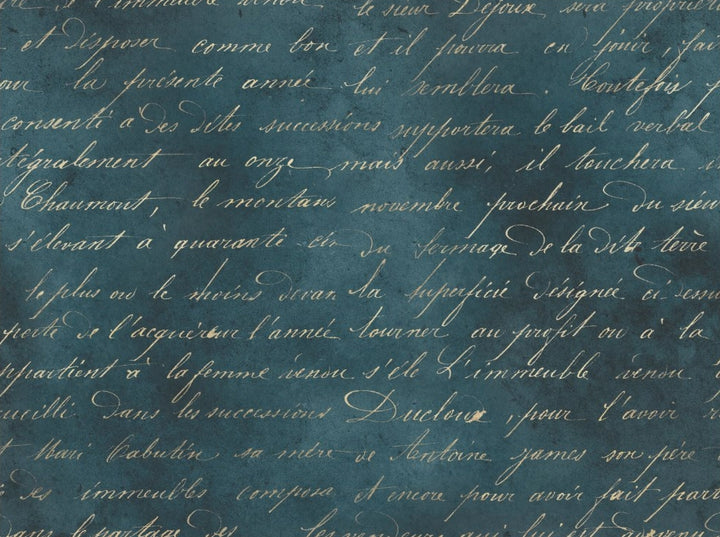 l'immeuble vendu le sieur Dejoux sera propriére
et disposer comme bon et il pourra en jouir, fai
our la présente année lui semblera . Toutefois p
consenti à des dites successions supportera le bail verbal
tégralement au onze mais aussi, il touchera i
Chaumont, le montans novembre prochain du sieu
s'élevant à quarante du fermage de la dite terre
le plus ou le moins devan la superficie désignée ci dessu
porté de l'acquéreur l'année tourner au profit ou à la
appartient à la femme vendu s'éle L'immeuble vendu
cueilli Dans les successions Ducloux , pour l'avoir r
et Mari Cabutin sa mère de Antoine james son père
é des immeubles composa et encore pour avoir fait part
dans le partage des les vendeurs qui lui est advenu